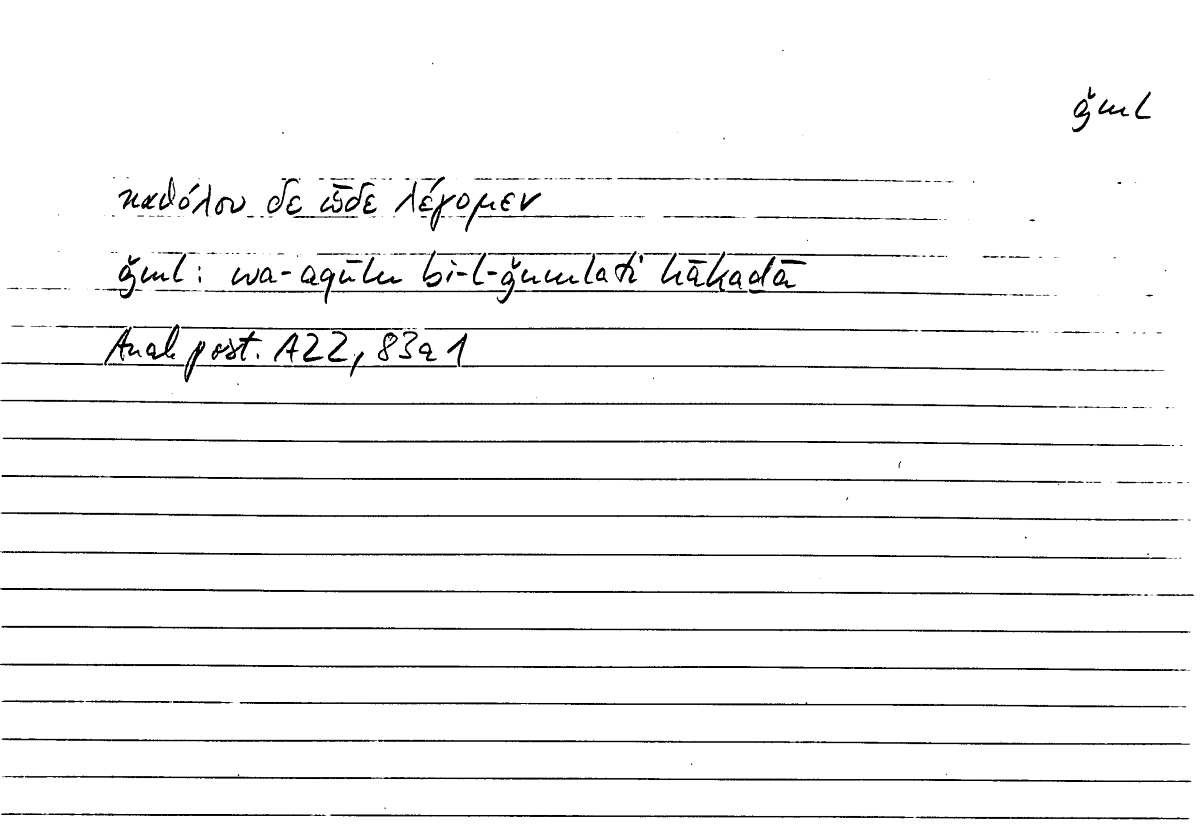 ǧml
καθόλου δε ὧδε λέγομεν
ǧml: wa-aqūlu bi-l-ǧumlati hākaḏā
Anal. post. A22, 83a1